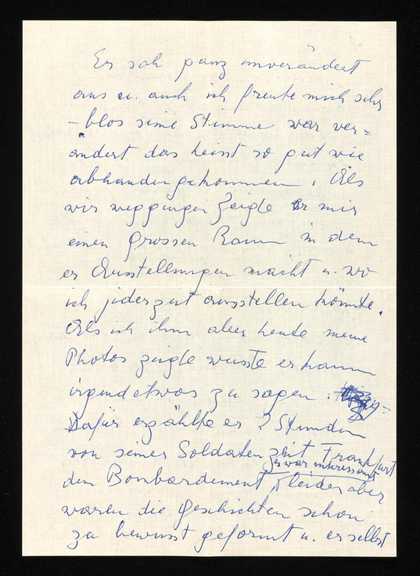 Er sah ganz unverändert
aus u. auch ich freute mich sehr
– blos seine Stimme war ver=
ändert das heisst so gut wie
abhandengekommen. Als
wir weggingen zeigte er mir
einen grossen Raum in dem
er Ausstellungen macht u. wo
ich jederzeit ausstellen könnte.
Als ich ihm aber heute meine
Photos zeigte wusste er kaum
irgendetwas zu sagen.
Dafür erzählte er 2 Stunden
von seiner Soldatenzeit Frankfurt
es war interessant
den Bombardement, leider aber
waren die Geschichten schon
zu bewusst geformt u. er selbst